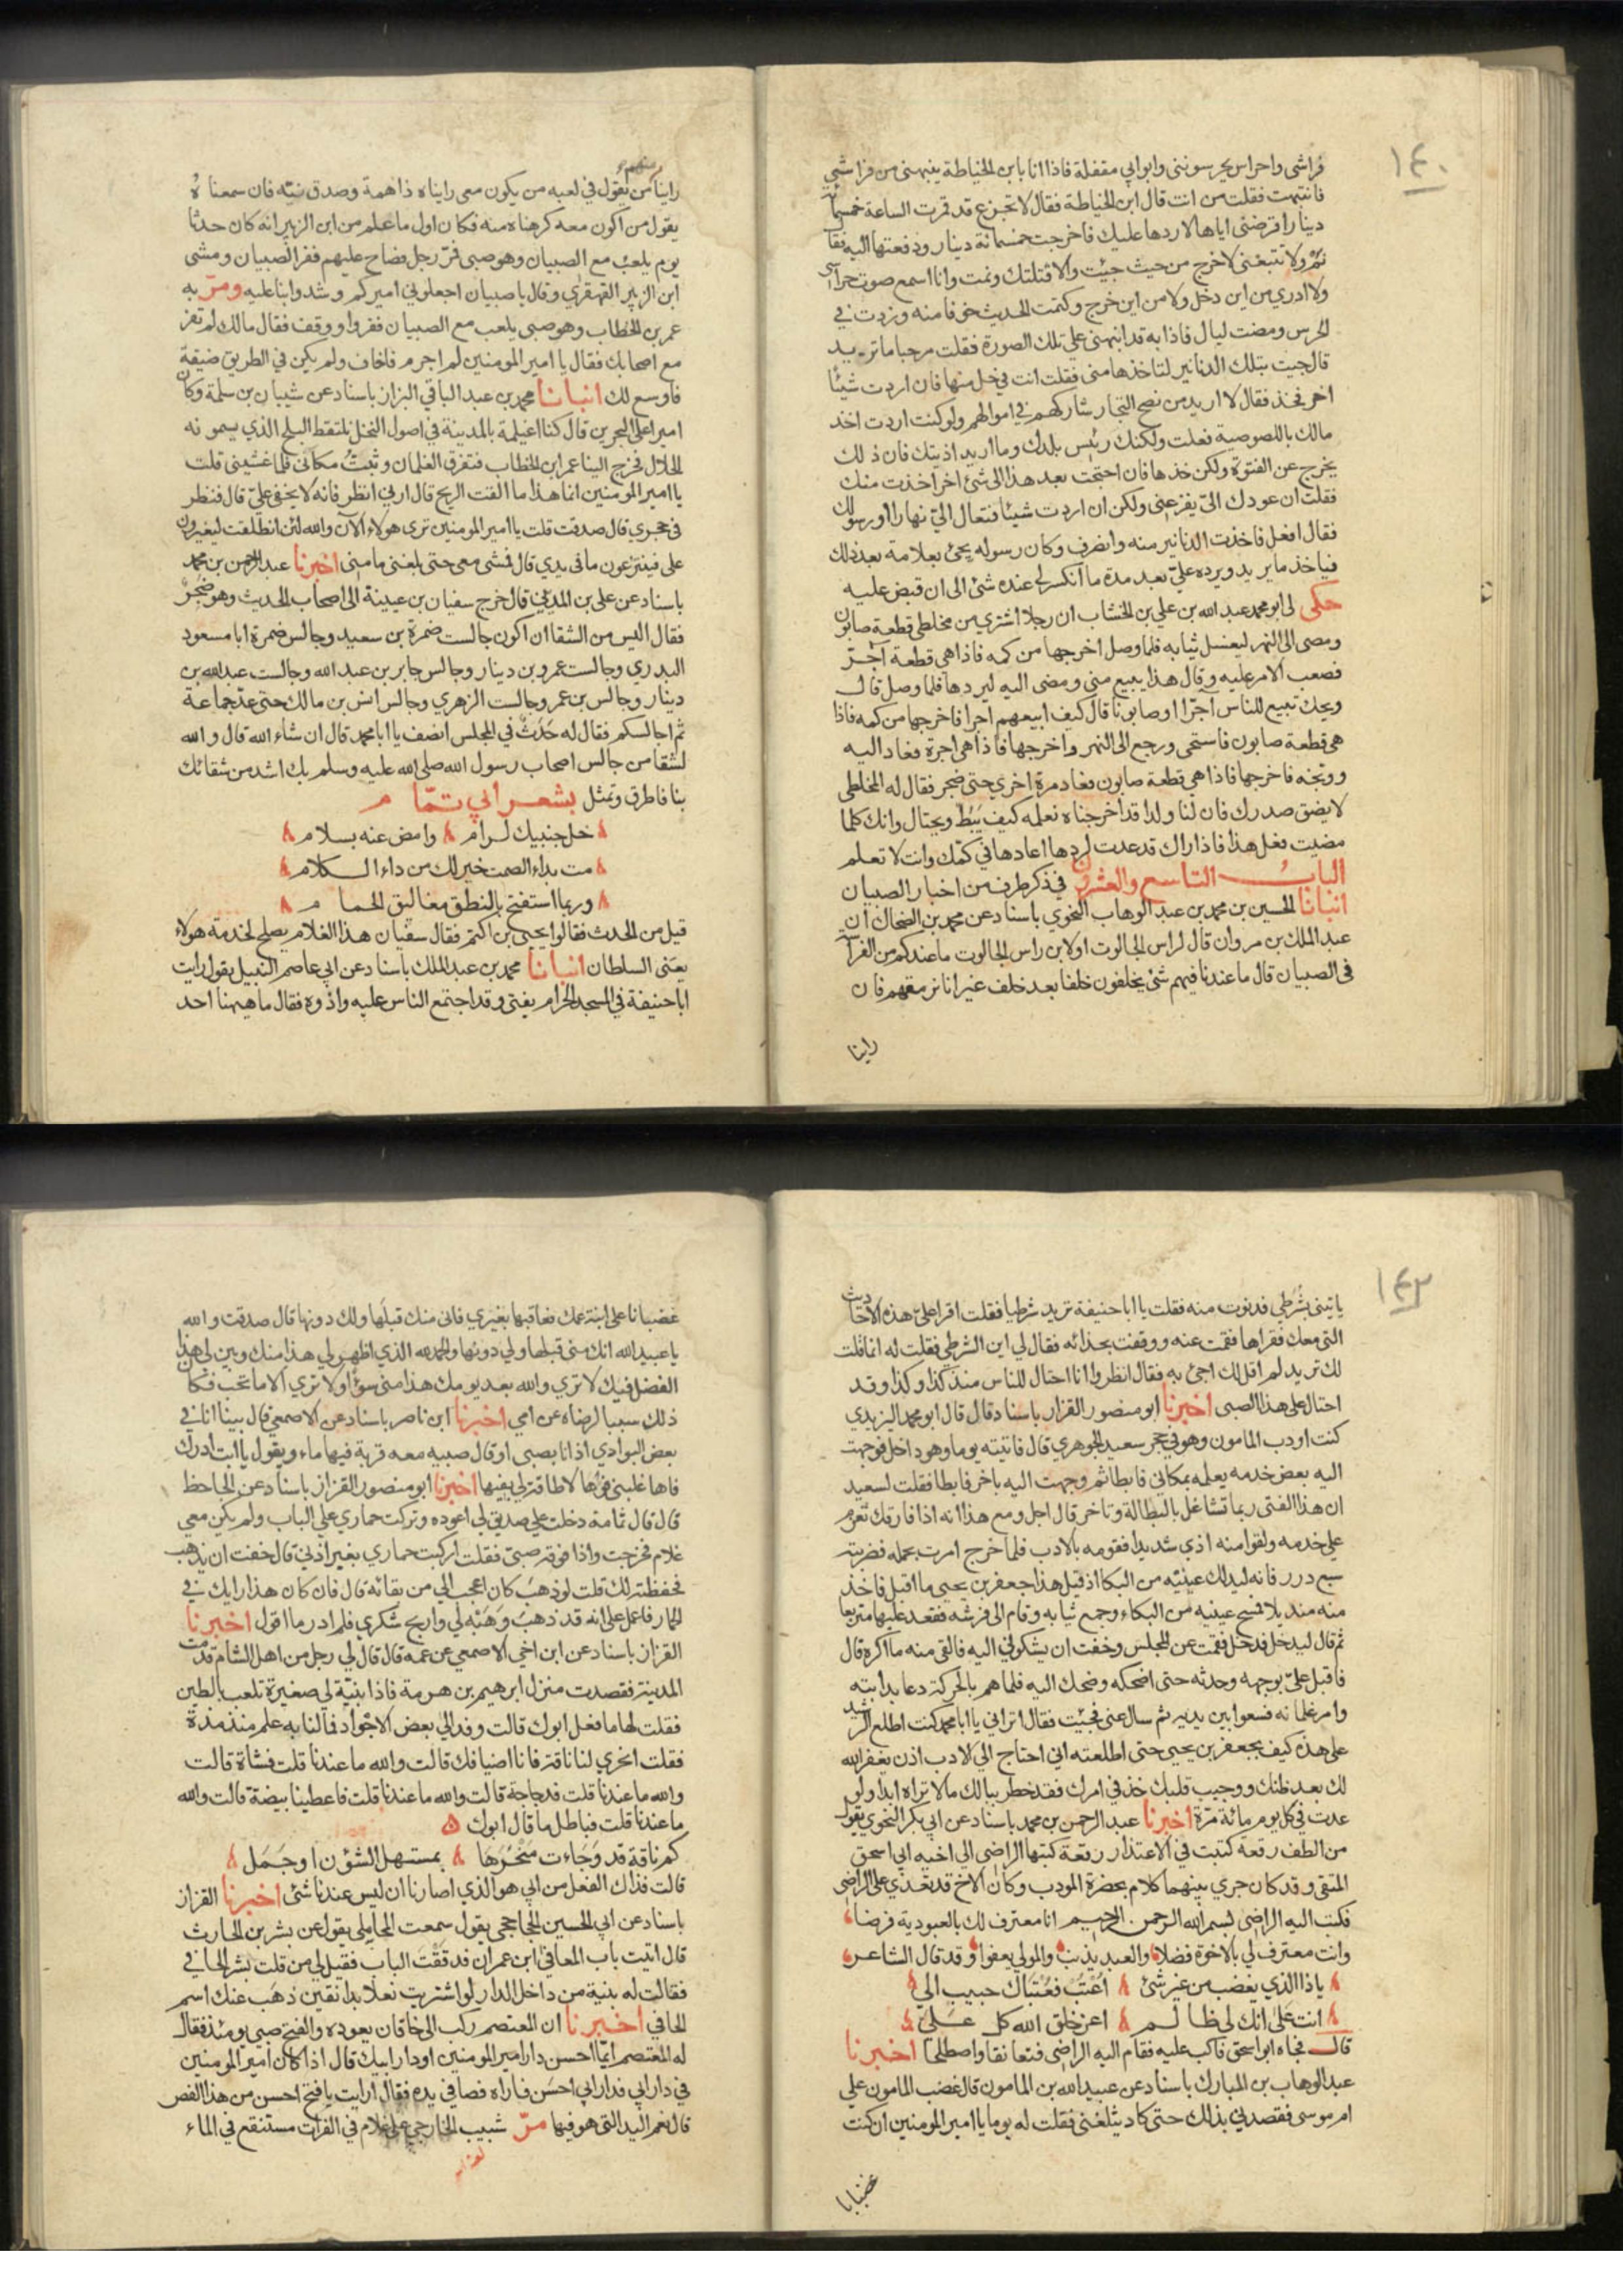 ١٤٠
فراشي واحراس يحرسونني وابوابي مقفلة فاذا انا بابن الخياطة ينبهني من فراشي
فانتبهت فقلت من انت قال ابن الخياطة فقال لا تجزع قد قمرت الساعة خمسمائة
دينار اقرضني اياها لاردها عليك فاخرجت خمسمائة دينار ودفعتها اليه فقا
نم ولا تتبعني لاخرج من حيث جيت والا قتلتك ونمت وانا اسمع صوت حراسي
ولا ادري من اين دخل ولا من اين خرج وكتمت الحديث خوفا منه وزدت في
الحرس ومضت ليال فاذا به قد انبهني على تلك الصورة فقلت مرحبا ما تريد
قال جيت بتلك الدنانير لتاخذها مني فقلت انت في حل منها فان اردت شيئا
اخر فخذ فقال لا اريد من نصح التجار شاركهم في اموالهم ولو كنت اردت اخذ
مالك باللصوصية فعلت ولكنك رئيس بلدك وما اريد اذيتك فان ذلك
يخرج عن الفتوة ولكن خذها فان احتجت بعد هذا الى شئ اخر اخذت منك
فقلت ان عودك الىّ يفزعني ولكن ان اردت شيئا فتعال اليّ نهارا او رسولك
فقال افعل فاخذت الدنانير منه وانصرف وكان رسوله يجئ بعلامة بعد ذلك
فياخذ ما يريد ويرده عليّ بعد مدة ما انكسر لي عنده شئ الى ان قبض عليه
حكى لي ابو محمد عبد الله بن علي بن الخشاب ان رجلا اشتري من مخلطي قطعة صابون
ومضى الى النهر ليغسل ثيابه فلما وصل اخرجها من كمه فاذا هي قطعة آجرّ
فصعب الامر عليه وقال هذا يبيع مني ومضى اليه ليردها فلما وصل قال
ويحك تبيع للناس آجرّا او صابونا قال كيف ابيعهم آجرا فاخرجها من كمه فاذا
هي قطعة صابون فاستحى ورجع الى النهر واخرجها فاذا هي اجرة فعاد اليه
ووبخه فاخرجها فاذا هي قطعة صابون فعاد مرة اخري حتى ضجر فقال له المخلطي
لا يضق صدرك فان لنا ولدا قد اخرجناه نعلمه كيف يَبُطّ ويحتال وانك كلما
مضيت فعل هذا فاذا راك قد عدت لردها اعادها في كمّك وانت لا تعلم
البابُ التاسع والعشرون في ذكر طرف من اخبار الصبيان
انبانا الحسين بن محمد بن عبد الوهاب النحوي باسناد عن محمد بن الضحاك ان
عبد الملك بن مروان قال لراس الجالوت او لابن راس الجالوت ما عندكم من الفراسة
في الصبيان قال ما عندنا فيهم شئ يخلقون خلقا بعد خلق غير انا نرمقهم فان
راينا
منهم
راينا من يقول في لعبه من يكون معي رايناه ذا همة وصدق نيّه فان سمعناهُ
يقول من اكون معه كرهناه منه فكان اول ما علم من ابن الزبير انه كان حدثا
يوم يلعب مع الصبيان وهو صبي فمرّ رجل فصاح عليهم ففر الصبيان ومشى
ابن الزبير القهقرَي وقال يا صبيان اجعلوني اميركم وشدوا بنا عليه ومرّ به
عمر بن الخطاب وهو صبي يلعب مع الصبيان ففروا ووقف فقال مالك لم تفر
مع اصحابك فقال يا امير المومنين لم اجرم فاخاف ولم يكن في الطريق ضيقة
فاوسع لك انبانا محمد بن عبد الباقي البزاز باسناد عن شيبان بن سلمة وكان
امير اعلى البحرين قال كنا اغيلمة بالمدينة في اصول النخل نلتقط البلح الذي يسمونه
الخلال فخرج الينا عمر ابن الخطاب فتفرق الغلمان وثبتُّ مكاني فلما غشيني قلت
يا امير المومنين انما هذا ما القت الريح قال ارني انظر فانه لا يخفى عليّ قال فنظر
في حجري قال صدقت قلت يا امير المومنين ترى هولاء الآن والله لئن انطلقت ليغيرون
على فينتزعون ما في يدي قال فمشى معي حتى بلغني مامني اخبرنا عبد الرحمن بن محمد
باسناد عن علي بن المديني قال خرج سفيان بن عيينة الى اصحاب الحديث وهو ضجِرٌ
فقال اليس من الشقا ان اكون جالست ضمرة بن سعيد وجالس ضمرة ابا مسعود
البدري وجالست عمرو بن دينار وجالس جابر بن عبد الله وجالست عبد الله بن
دينار وجالس بن عمر وجالست الزهري وجالس انس بن مالك حتى عدّ جماعة
ثم اجالسكم فقال له حَدَثٌ في المجلس انصف يا ابا محمد قال ان شاء الله قال والله
لشقا من جالس اصحاب رسول الله صلى الله عليه وسلم بك اشد من شقائك
بنا فاطرق وتمثل بشعر ابي تمّام
خل جنبيك لرام وامض عنه بسلام
مت بداء الصمت خير لك من داء الكلام
وربما استفتح بالنطق مغاليق الحمام
قيل من الحدث فقالوا يحيى بن اكثم فقال سفيان هذا الغلام يصلح لخدمة هولاء
يعني السلطان انبانا محمد بن عبد الملك باسناد عن ابي عاصم النبيل يقول رايت
ابا حنيفة في المسجد الحرام يفتي وقد اجتمع الناس عليه واذوه فقال ما ههنا احد
١٤٢
ياتيني بشرطي فدنوت منه فقلت يا ابا حنيفة تريد شرطيا فقلت اقرا عليّ هذه الاحاديث
التي معك فقراها فقمت عنه ووقفت بحذائه فقال لي اين الشرطي فقلت له انما قلت
لك تريد لم اقل لك اجئ به فقال انظروا انا احتال للناس منذ كذا وكذا وقد
احتال على هذا الصبي اخبرنا ابو منصور القزاز باسناد قال قال ابو محمد اليزيدي
كنت اودب المامون وهو في حجر سعيد الجوهري قال فاتيته يوما وهو داخل فوجهت
اليه بعض خدمه يعلمه بمكاني فابطا ثم وجهت اليه باخر فابطا فقلت لسعيد
ان هذا الفتى ربما تشاغل بالبطالة وتاخر قال اجل ومع هذا انه اذا فارقك تعرّم
على خدمه ولقوا منه اذي شديدا فقومه بالادب فلما خرج امرت بحمله فضربته
سبع درر فانه ليدلك عينيه من البكا اذ قيل هذا جعفر بن يحيى ما اقبل فاخذ
منه منديلا فمسح عينيه من البكاء وجمع ثيابه وقام الى فرشه فقعد عليها متربعا
ثم قال ليدخل فدخل فقمت عن المجلس وخفت ان يشكوني اليه فالقى منه ما اكره قال
فاقبل عليّ بوجهه وحدثه حتى اضحكه وضحك اليه فلما هم بالحركة دعا بدابته
وامر غلمانه فسعوا بين يديه ثم سال عني فجيت فقال اتراني يا ابا محمد كنت اطلع الرشيد
على هذه كيف بجعفر بن يحيى حتى اطلعته اني احتاج الى الادب اذن يغفر الله
لك بعد ظنك ووجيب قلبك خذ في امرك فقد خطر ببالك ما لا تراه ابدا ولو
عدت في كل يوم مائة مرّة اخبرنا عبد الرحمن بن محمد باسناد عن ابي بكر النحوي يقول
من الطف رقعة كتبت في الاعتذار رقعة كتبها الراضي الى اخيه ابي اسحق
المتقي وقد كان جري بينهما كلام بحضرة المودب وكان الاخ قد تعدي على الراضي
فكتب اليه الراضي بسم الله الرحمن الرحيم انا معترف لك بالعبودية فرضا
وانت معترف لي بالاخوة فضلا والعبد يذنب والمولي يعفوا وقد قال الشاعر
يا ذا الذي يغضب من غير شئ اعْتَبْ فعُتباك حبيب الي
انت عَلى انك لي ظالم اعز خلق الله كل عَليّ
قال فجاه ابو اسحق فاكب عليه فقام اليه الراضي فتعانقا واصطلحا اخبرنا
عبد الوهاب بن المبارك باسناد عن عبيد الله بن المامون قال غضب المامون على
ام موسى فقصدني بذلك حتى كاد يتلفني فقلت له يوما يا امير المومنين ان كنت
غضبانا
غضبانا على ابنة عمك فعاقبها بغيري فاني منك قبلها ولك دونها قال صدقت والله
يا عبيد الله انك مني قبلها ولي دونها والحمد لله الذي اظهر لي هذا منك وبين لي هذا
الفضل فيك لا تري والله بعد يومك هذا مني سوءًا ولا تري الا ما تحب فكان
ذلك سببا لرضاه عن امي اخبرنا ابن ناصر باسناد عن الاصمعي قال بينا انا في
بعض البوادي اذ انا بصبي او قال صبيه معه قربة فيها ماء ويقول يا ابت ادرك
فاها غلبني فوها لا طاقة لي بفيها اخبرنا ابو منصور القزاز باسناد عن الجاحظ
قال قال ثمامة دخلت على صديق لي اعوده وتركت حماري على الباب ولم يكن معي
غلام فخرجت واذا فوقه صبيّ فقلت اركبت حماري بغير اذني قال خفت ان يذهب
فحفظته لك قلت لو ذهبَ كان اعجب الي من بقائه قال فان كان هذا رايك في
الحمار فاعمل على انه قد ذهبَ وَهَبْه لي واربح شكري فلم ادر ما اقول اخبرنا
القزاز باسناد عن ابن اخي الاصمعي عن عمه قال قال لي رجل من اهل الشام قدمت
المدينة فقصدت منزل ابرهيم بن هرمة فاذا بنيّة لي صغيرة تلعب بالطين
فقلت لها ما فعل ابوك قالت وفد الي بعض الاجواد فمالنا به علم منذ مدة
فقلت انحري لنا ناقة فانا اضيافك قالت والله ما عندنا قلت فشاة قالت
والله ما عندنا قلت فدجاجة قالت والله ما عندنا قلت فاعطينا بيضة قالت والله
ما عندنا قلت فباطل ما قال ابوك
كم ناقة قد وَجَاءت مَنْحَرُهَا بمستهل الشؤن او جَمَل
قالت فذاك الفعل من ابي هو الذي اصارنا ان ليس عندنا شئ اخبرنا القزاز
باسناد عن ابي الحسين الحجاجي يقول سمعت المحاملي يقول عن بشر بن الحارث
قال اتيت باب المعافي ابن عمران فدققتَ الباب فقيل لي من قلت بشر الحافي
فقالت له بنية من داخل الدار لو اشتريت نعلا بدانقين ذهَب عنك اسم
الحافي اخبرنا ان المعتصم ركب الى خاقان يعوده والفتح صبي يومئذ فقال
له المعتصم ايّما احسن دار امير المومنين او دار ابيك قال اذا كان امير المومنين
في دار ابي فدار ابي احسَن فاراه فصا في يده فقال ارايت يا فتح احسن من هذا الفص
قال نعم اليد التي هو فيها مرّ شبيب الخارجي على غلام في الفرات مستنقع في الماء